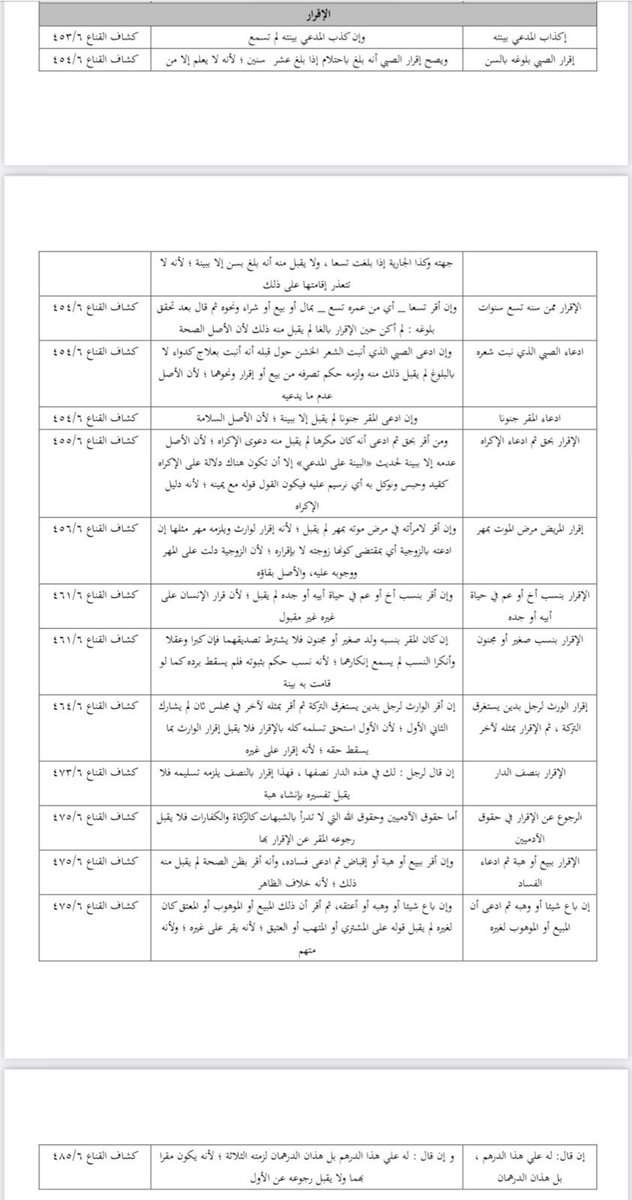 الإقرار
إكذاب المدعي بينته
وإن كذب المدعي بينته لم تسمع
كشاف القناع ٤٥٣/٦
إقرار الصبي بلوغه بالسن
ويصح إقرار الصبي أنه بلغ باحتلام إذا بلغ عشر سنين ؛ لأنه لا يعلم إلا من
كشاف القناع ٤٥٤/٦
جهته وكذا الجارية إذا بلغت تسعا ، ولا يقبل منه أنه بلغ بسن إلا ببينة ؛ لأنه لا
تتعذر إقامتها على ذلك
الإقرار ممن سنه تسع سنوات
وإن أقر تسعا _ أي من عمره تسع _ بمال أو بيع أو شراء ونحوه ثم قال بعد تحقق
بلوغه : لم أكن حين الإقرار بالغا لم يقبل منه ذلك لأن الأصل الصحة
كشاف القناع ٤٥٤/٦
ادعاء الصبي الذي نبت شعره
وإن ادعى الصبي الذي أنبت الشعر الخشن حول قبله أنه أنبت بعلاج كدواء لا
بالبلوغ لم يقبل ذلك منه ولزمه حكم تصرفه من بيع أو إقرار ونحوهما ؛ لأن الأصل
عدم ما يدعيه
كشاف القناع ٤٥٤/٦
ادعاء المقر جنونا
وإن ادعى المقر جنونا لم يقبل إلا ببينة ؛ لأن الأصل السلامة
كشاف القناع ٤٥٤/٦
الإقرار بحق ثم ادعاء الإكراه
ومن أقر بحق ثم ادعى أنه كان مكرها لم يقبل منه دعوى الإكراه ؛ لأن الأصل
عدمه إلا ببينة لحديث «البينة على المدعي» إلا أن تكون هناك دلالة على الإكراه
كقيد وحبس وتوكل به أي ترسيم عليه فيكون القول قوله مع يمينه ؛ لأنه دليل
الإكراه
كشاف القناع ٤٥٥/٦
إقرار المريض مرض الموت بمهر
وإن أقر لامرأته في مرض موته بمهر لم يقبل ؛ لأنه إقرار لوارث ويلزمه مهر مثلها إن
ادعته بالزوجية أي بمقتضى كونها زوجته لا بإقراره ؛ لأن الزوجية دلت على المهر
ووجوبه عليه، والأصل بقاؤه
كشاف القناع ٤٥٦/٦
الإقرار بنسب أخ أو عم في حياة
أبيه أو جده
وإن أقر بنسب أخ أو عم في حياة أبيه أو جده لم يقبل ؛ لأن قرار الإنسان على
غيره غير مقبول
كشاف القناع ٤٦١/٦
الإقرار بنسب صغير أو مجنون
إن كان المقر بنسبه ولد صغير أو مجنون فلا يشترط تصديقهما فإن كبرا وعقلا
وأنكرا النسب لم يسمع إنكارهما ؛ لأنه نسب حكم بثبوته فلم يسقط برده كما لو
قامت به بينة
كشاف القناع ٤٦١/٦
إقرار الورث لرجل بدين يستغرق
التركة ، ثم الإقرار بمثله لآخر
إن أقر الوارث لرجل بدين يستغرق التركة ثم أقر بمثله لآخر في مجلس ثان لم يشارك
الثاني الأول ؛ لأن الأول استحق تسلمه كله بالإقرار فلا يقبل إقرار الوارث بما
يسقط حقه ؛ لأنه إقرار على غيره
كشاف القناع ٤٦٤/٦
الإقرار بنصف الدار
إن قال لرجل : لك في هذه الدار نصفها ، فهذا إقرار بالنصف يلزمه تسليمه فلا
يقبل تفسيره بإنشاء هبة
كشاف القناع ٤٧٣/٦
الرجوع عن الإقرار في حقوق
الآدميين
أما حقوق الآدميين وحقوق الله التي لا تدرأ بالشبهات كالزكاة والكفارات فلا يقبل
رجوعه المقر عن الإقرار بها
كشاف القناع ٤٧٥/٦
الإقرار ببيع أو هبة ثم ادعاء
الفساد
وإن أقر ببيع أو هبة أو إقباض ثم ادعى فساده، وأنه أقر بظن الصحة لم يقبل منه
ذلك ؛ لأنه خلاف الظاهر
كشاف القناع ٤٧٥/٦
إن باع شيئا أو وهبه ثم ادعى أن
المبيع أو الموهوب لغيره
وإن باع شيئا أو وهبه أو أعتقه، ثم أقر أن ذلك المبيع أو الموهوب أو المعتق كان
لغيره لم يقبل قوله على المشتري أو المتهب أو العتيق ؛ لأنه يقر على غيره ؛ ولأنه
متهم
كشاف القناع ٤٧٥/٦
إن قال: له علي هذا الدرهم ،
بل هذان الدرهمان
و إن قال : له علي هذا الدرهم بل هذان الدرهمان لزمته الثلاثة ؛ لأنه يكون مقرا
بهما ولا يقبل رجوعه عن الأول
كشاف القناع ٤٨٥/٦